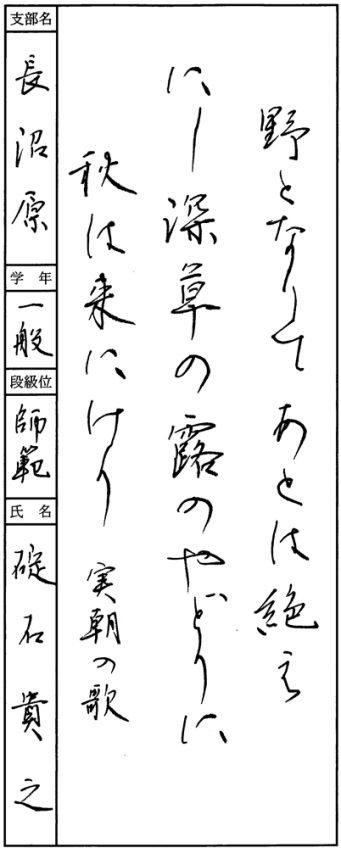 野となりてあとは絶え
にし深草の露のやどりに
秋は来にけり 実朝の歌
支部名
長沼原
学年
一般
段級位
師範
氏名
碇石貴之